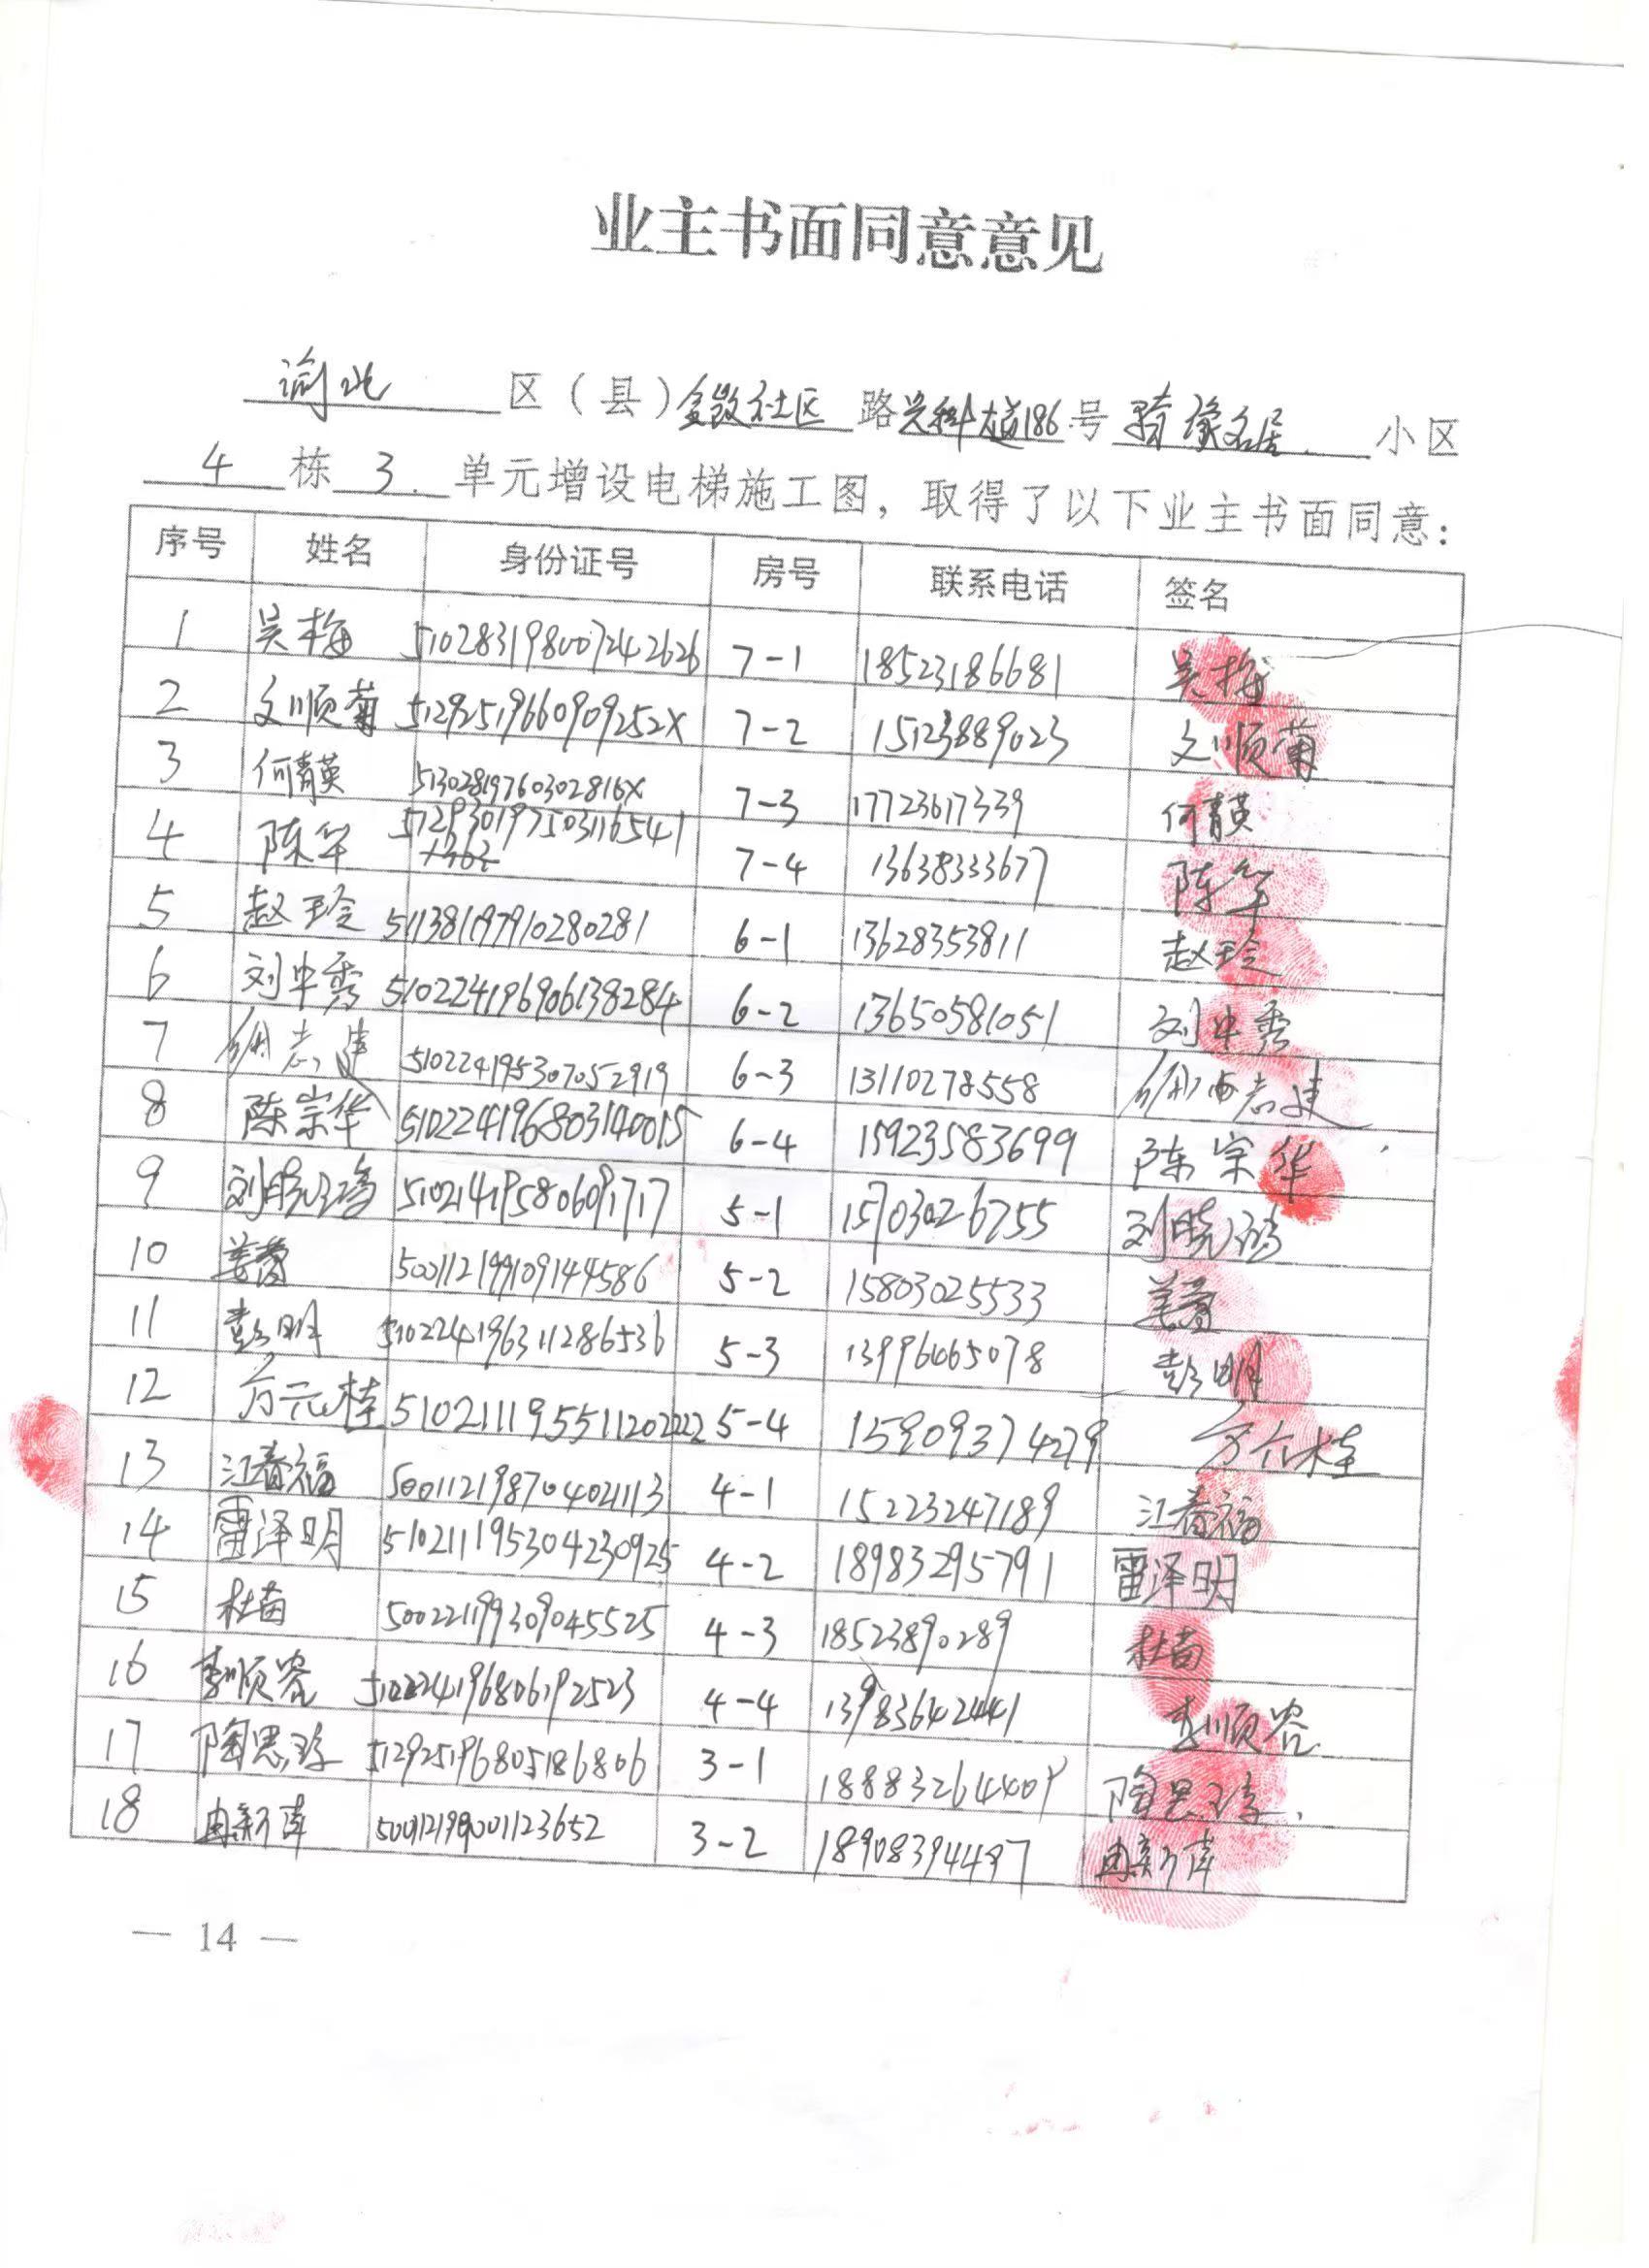 业主书面同意意见
渝北 区（县）金徽社区 路兴科大道186号 骑缘名居 小区
4 栋 3 单元增设电梯施工图，取得了以下业主书面同意：
序号 姓名 身份证号 房号 联系电话 签名
1 吴梅 510283198007242626 7-1 18523186681 吴梅
2 文顺菊 51292519660909252X 7-2 15123889023 文顺菊
3 何青英 51302819760302816X 7-3 17723617339 何青英
4 陈华 512930197503116541 7-4 13638333677 陈华
5 赵玲 511381197910280281 6-1 13628353811 赵玲
6 刘中秀 510224196906138284 6-2 13650581051 刘中秀
7 志建 510224195307052919 6-3 13110278558 志建
8 陈宗华 510224196803140015 6-4 15923583699 陈宗华
9 刘晓 510214195806091717 5-1 15703026755 刘晓
10 姜 500112199109144586 5-2 15803025533 姜
11 彭明 510224196311286536 5-3 13996465078 彭明
12 方元桂 510211195511202222 5-4 15909374279 方元桂
13 江春福 500112198704021113 4-1 15223247189 江春福
14 雷泽明 510211195304230925 4-2 18983295791 雷泽明
15 杜苗 500221199309045525 4-3 18523890289 杜苗
16 李顺容 510224196806192523 4-4 13983642441 李顺容
17 陶思 512925196805186806 3-1 18883264409 陶思
18 冉新 500112199001123652 3-2 18908394497 冉新
— 14 —